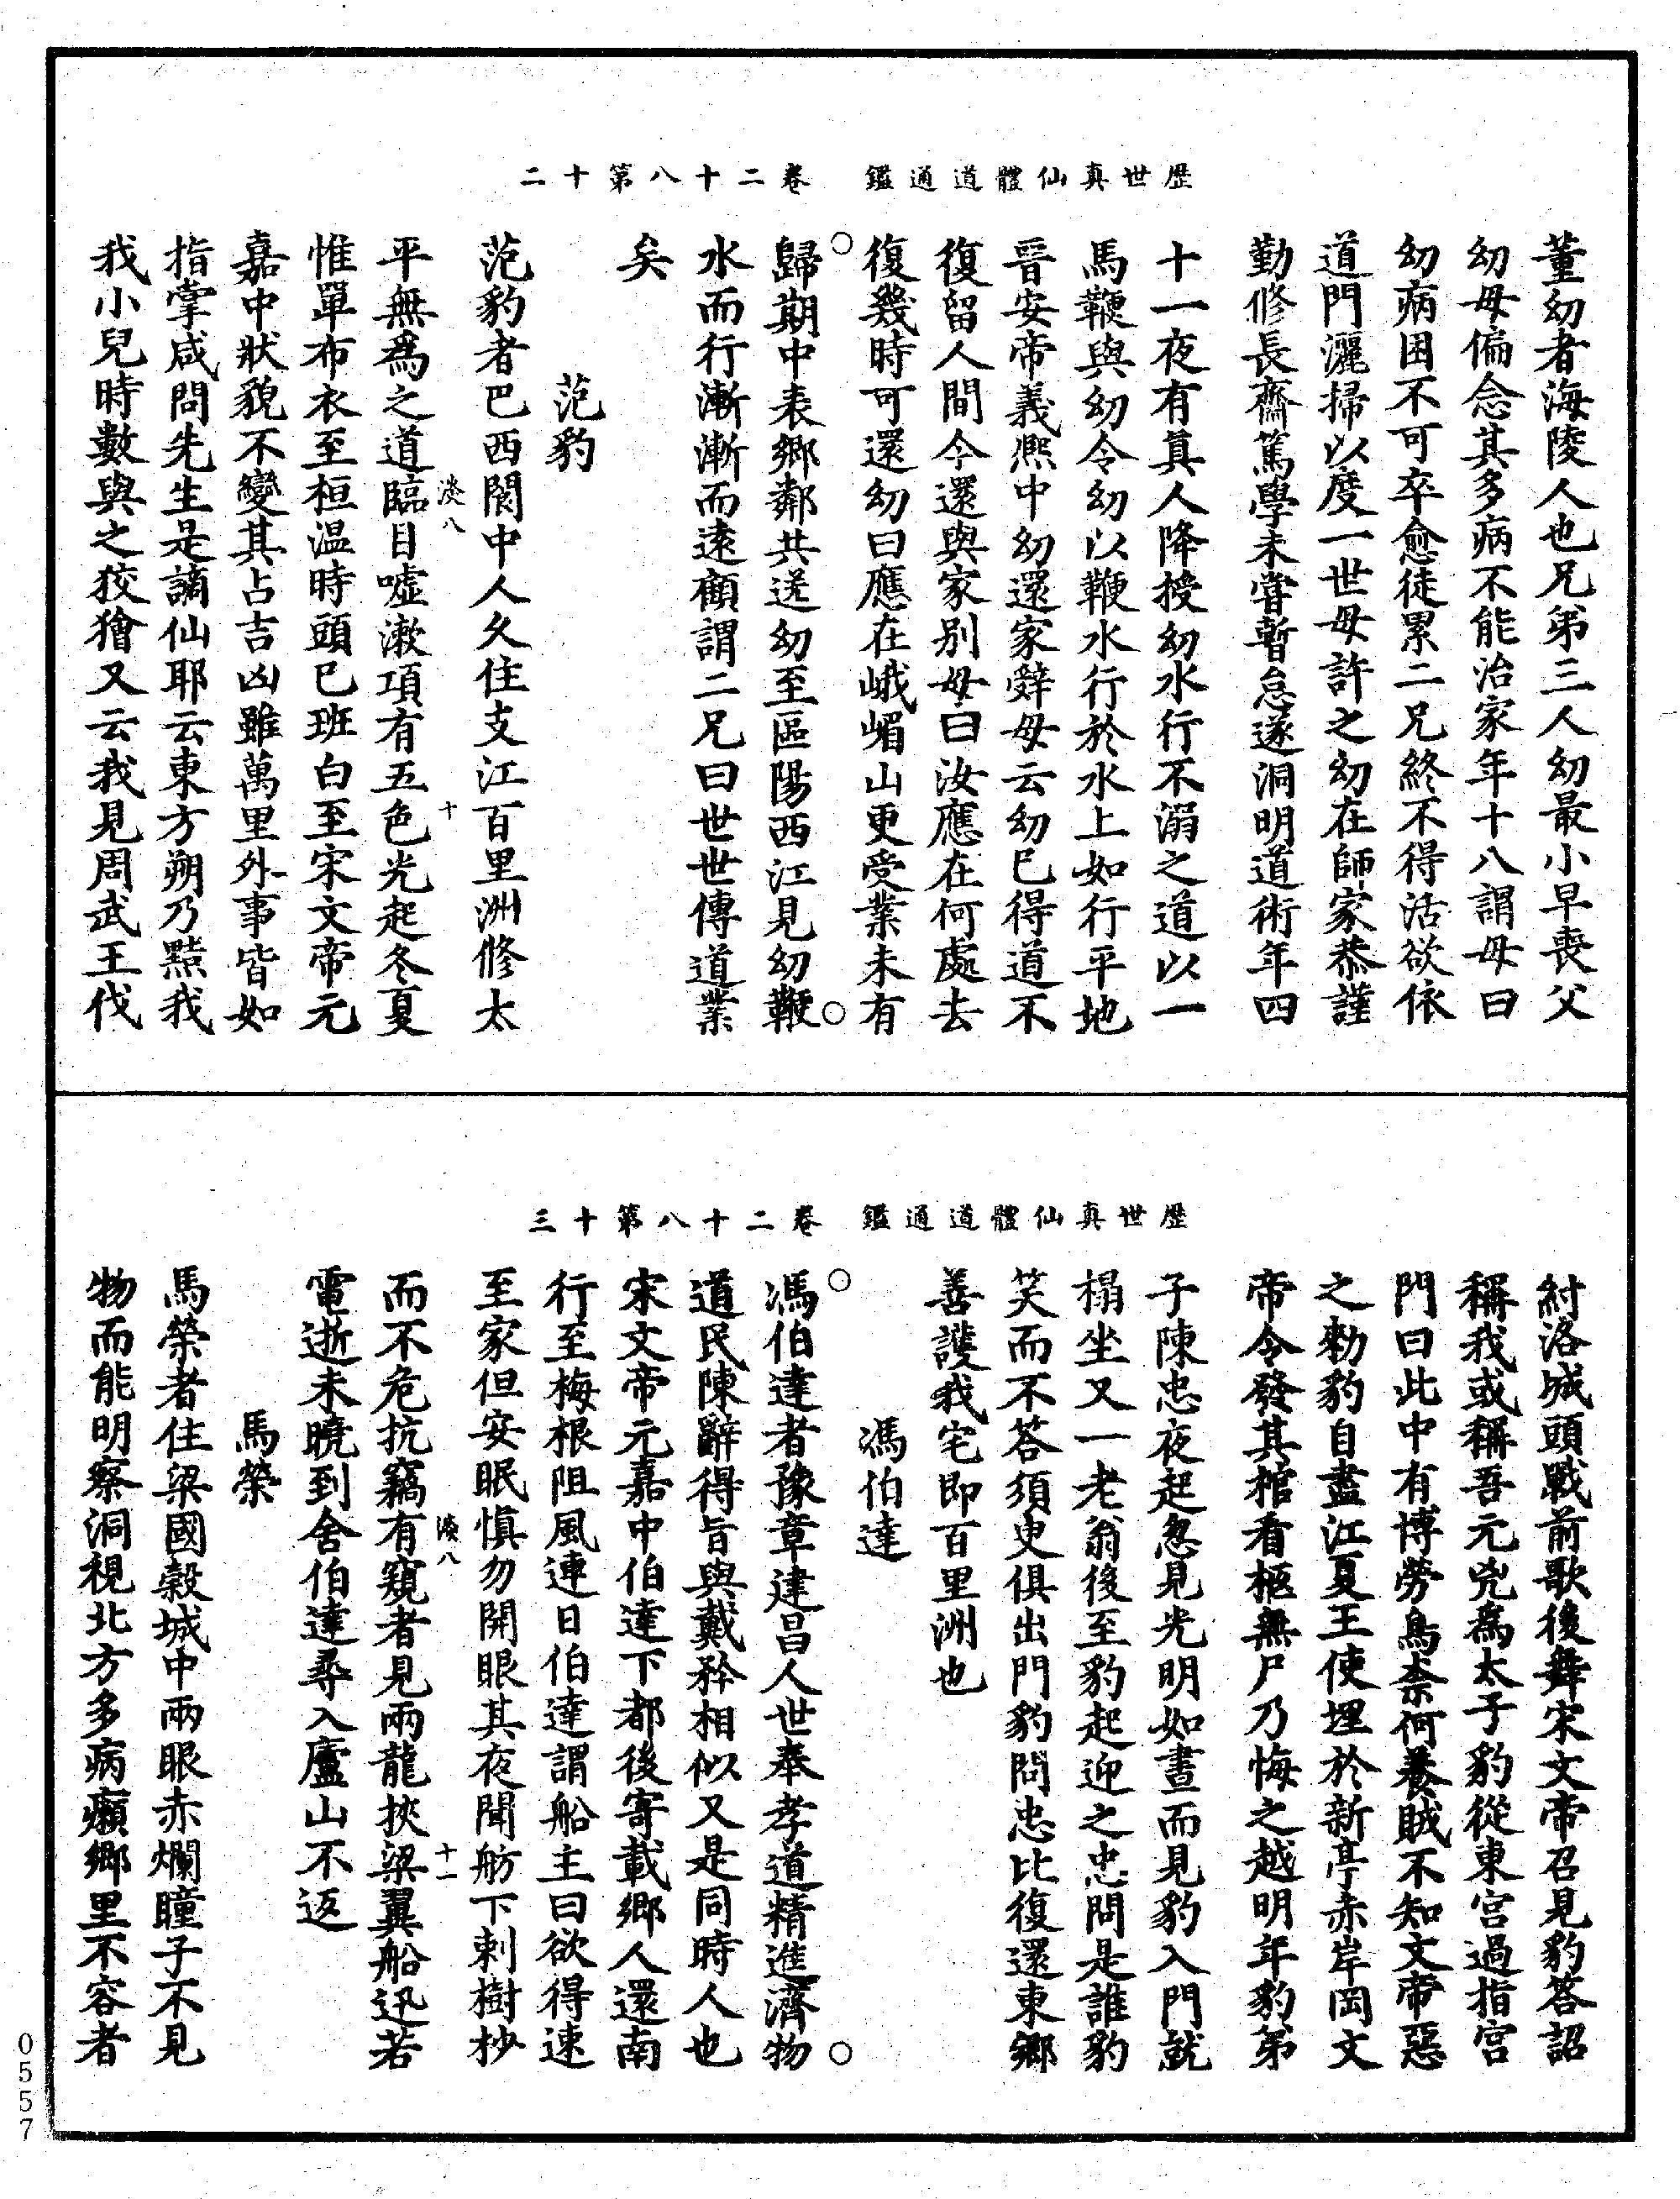 歷世真仙體道通鑑　卷二十八第十二
董幼者海陵人也兄弟三人幼最小早喪父
幼母偏念其多病不能治家年十八謂母曰
幼病困不可卒愈徒累二兄終不得活欲依
道門灑掃以度一世母許之幼在師家恭謹
勤修長齋篤學未嘗暫怠遂洞明道術年四
十一夜有真人降授幼水行不溺之道以一
馬鞭與幼令幼以鞭水行於水上如行平地
晉安帝義熙中幼還家辭母云幼已得道不
復留人間今還與家別母曰汝應在何處去
復幾時可還幼曰應在峨嵋山更受業未有
歸期中表鄉鄰共送幼至區陽西江見幼鞭
水而行漸漸而遠顧謂二兄曰世世傳道業
矣
范豹
范豹者巴西閬中人久住支江百里洲修太
淡八　十
平無為之道臨目噓漱項有五色光起冬夏
惟單布衣至桓温時頭已班白至宋文帝元
嘉中狀貌不變其占吉凶雖萬里外事皆如
指掌咸問先生是謫仙耶云東方朔乃黠我
我小兒時數與之狡獪又云我見周武王伐
歷世真仙體道通鑑　卷二十八第十三
紂洛城頭戰前歌後舞宋文帝召見豹答詔
稱我或稱吾元兇為太子豹從東宮過指宮
門曰此中有博勞鳥柰何養賊不知文帝惡
之勑豹自盡江夏王使埋於新亭赤岸岡文
帝令發其棺看柩無尸乃悔之越明年豹弟
子陳忠夜起忽見光明如晝而見豹入門就
榻坐又一老翁後至豹起迎之忠問是誰豹
笑而不答須臾俱出門豹問忠比復還東鄉
善護我宅即百里洲也
馮伯達
馮伯達者豫章建昌人世奉孝道精進濟物
道民陳辭得旨與戴矜相似又是同時人也
宋文帝元嘉中伯達下都後寄載鄉人還南
行至梅根阻風連日伯達謂船主曰欲得速
至家但安眠慎勿開眼其夜聞舫下刺樹杪
淡八　十一
而不危抗竊有窺者見兩龍挾梁翼船迅若
電逝未曉到舍伯達尋入廬山不返
馬榮
馬榮者住梁國穀城中兩眼赤爛瞳子不見
物而能明察洞視北方多病癩鄉里不容者
0557